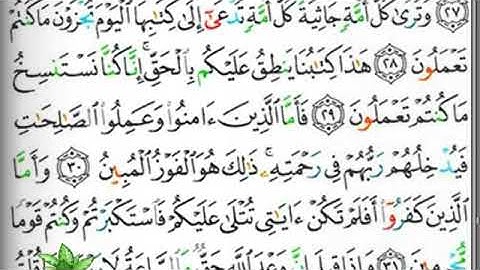 ٢٧ وَتَرَىٰ كُلَّ أُمَّةٍ جَاثِيَةً كُلُّ أُمَّةٍ تُدْعَىٰٓ إِلَىٰ كِتَٰبِهَا ٱلْيَوْمَ تُجْزَوْنَ مَا كُنتُمْ
تَعْمَلُونَ ٢٨ هَٰذَا كِتَٰبُنَا يَنطِقُ عَلَيْكُم بِٱلْحَقِّ ۚ إِنَّا كُنَّا نَسْتَنسِخُ
مَا كُنتُمْ تَعْمَلُونَ ٢٩ فَأَمَّا ٱلَّذِينَ ءَامَنُوا۟ وَعَمِلُوا۟ ٱلصَّٰلِحَٰتِ
فَيُدْخِلُهُمْ رَبُّهُمْ فِى رَحْمَتِهِۦ ۚ ذَٰلِكَ هُوَ ٱلْفَوْزُ ٱلْمُبِينُ ٣٠ وَأَمَّا
ٱلَّذِينَ كَفَرُوٓا۟ أَفَلَمْ تَكُنْ ءَايَٰتِى تُتْلَىٰ عَلَيْكُمْ فَٱسْتَكْبَرْتُمْ وَكُنتُمْ قَوْمًا
مُّجْرِمِينَ ٣١ وَإِذَا قِيلَ إِنَّ وَعْدَ ٱللَّهِ حَقٌّ وَٱلسَّاعَةُ لَا قُلْتُم